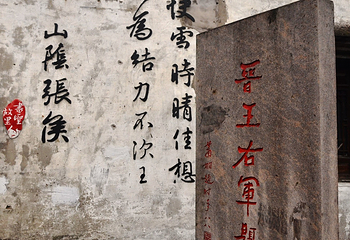 晉王右軍題
快雪時晴佳想
為結力不次王
山陰張侯